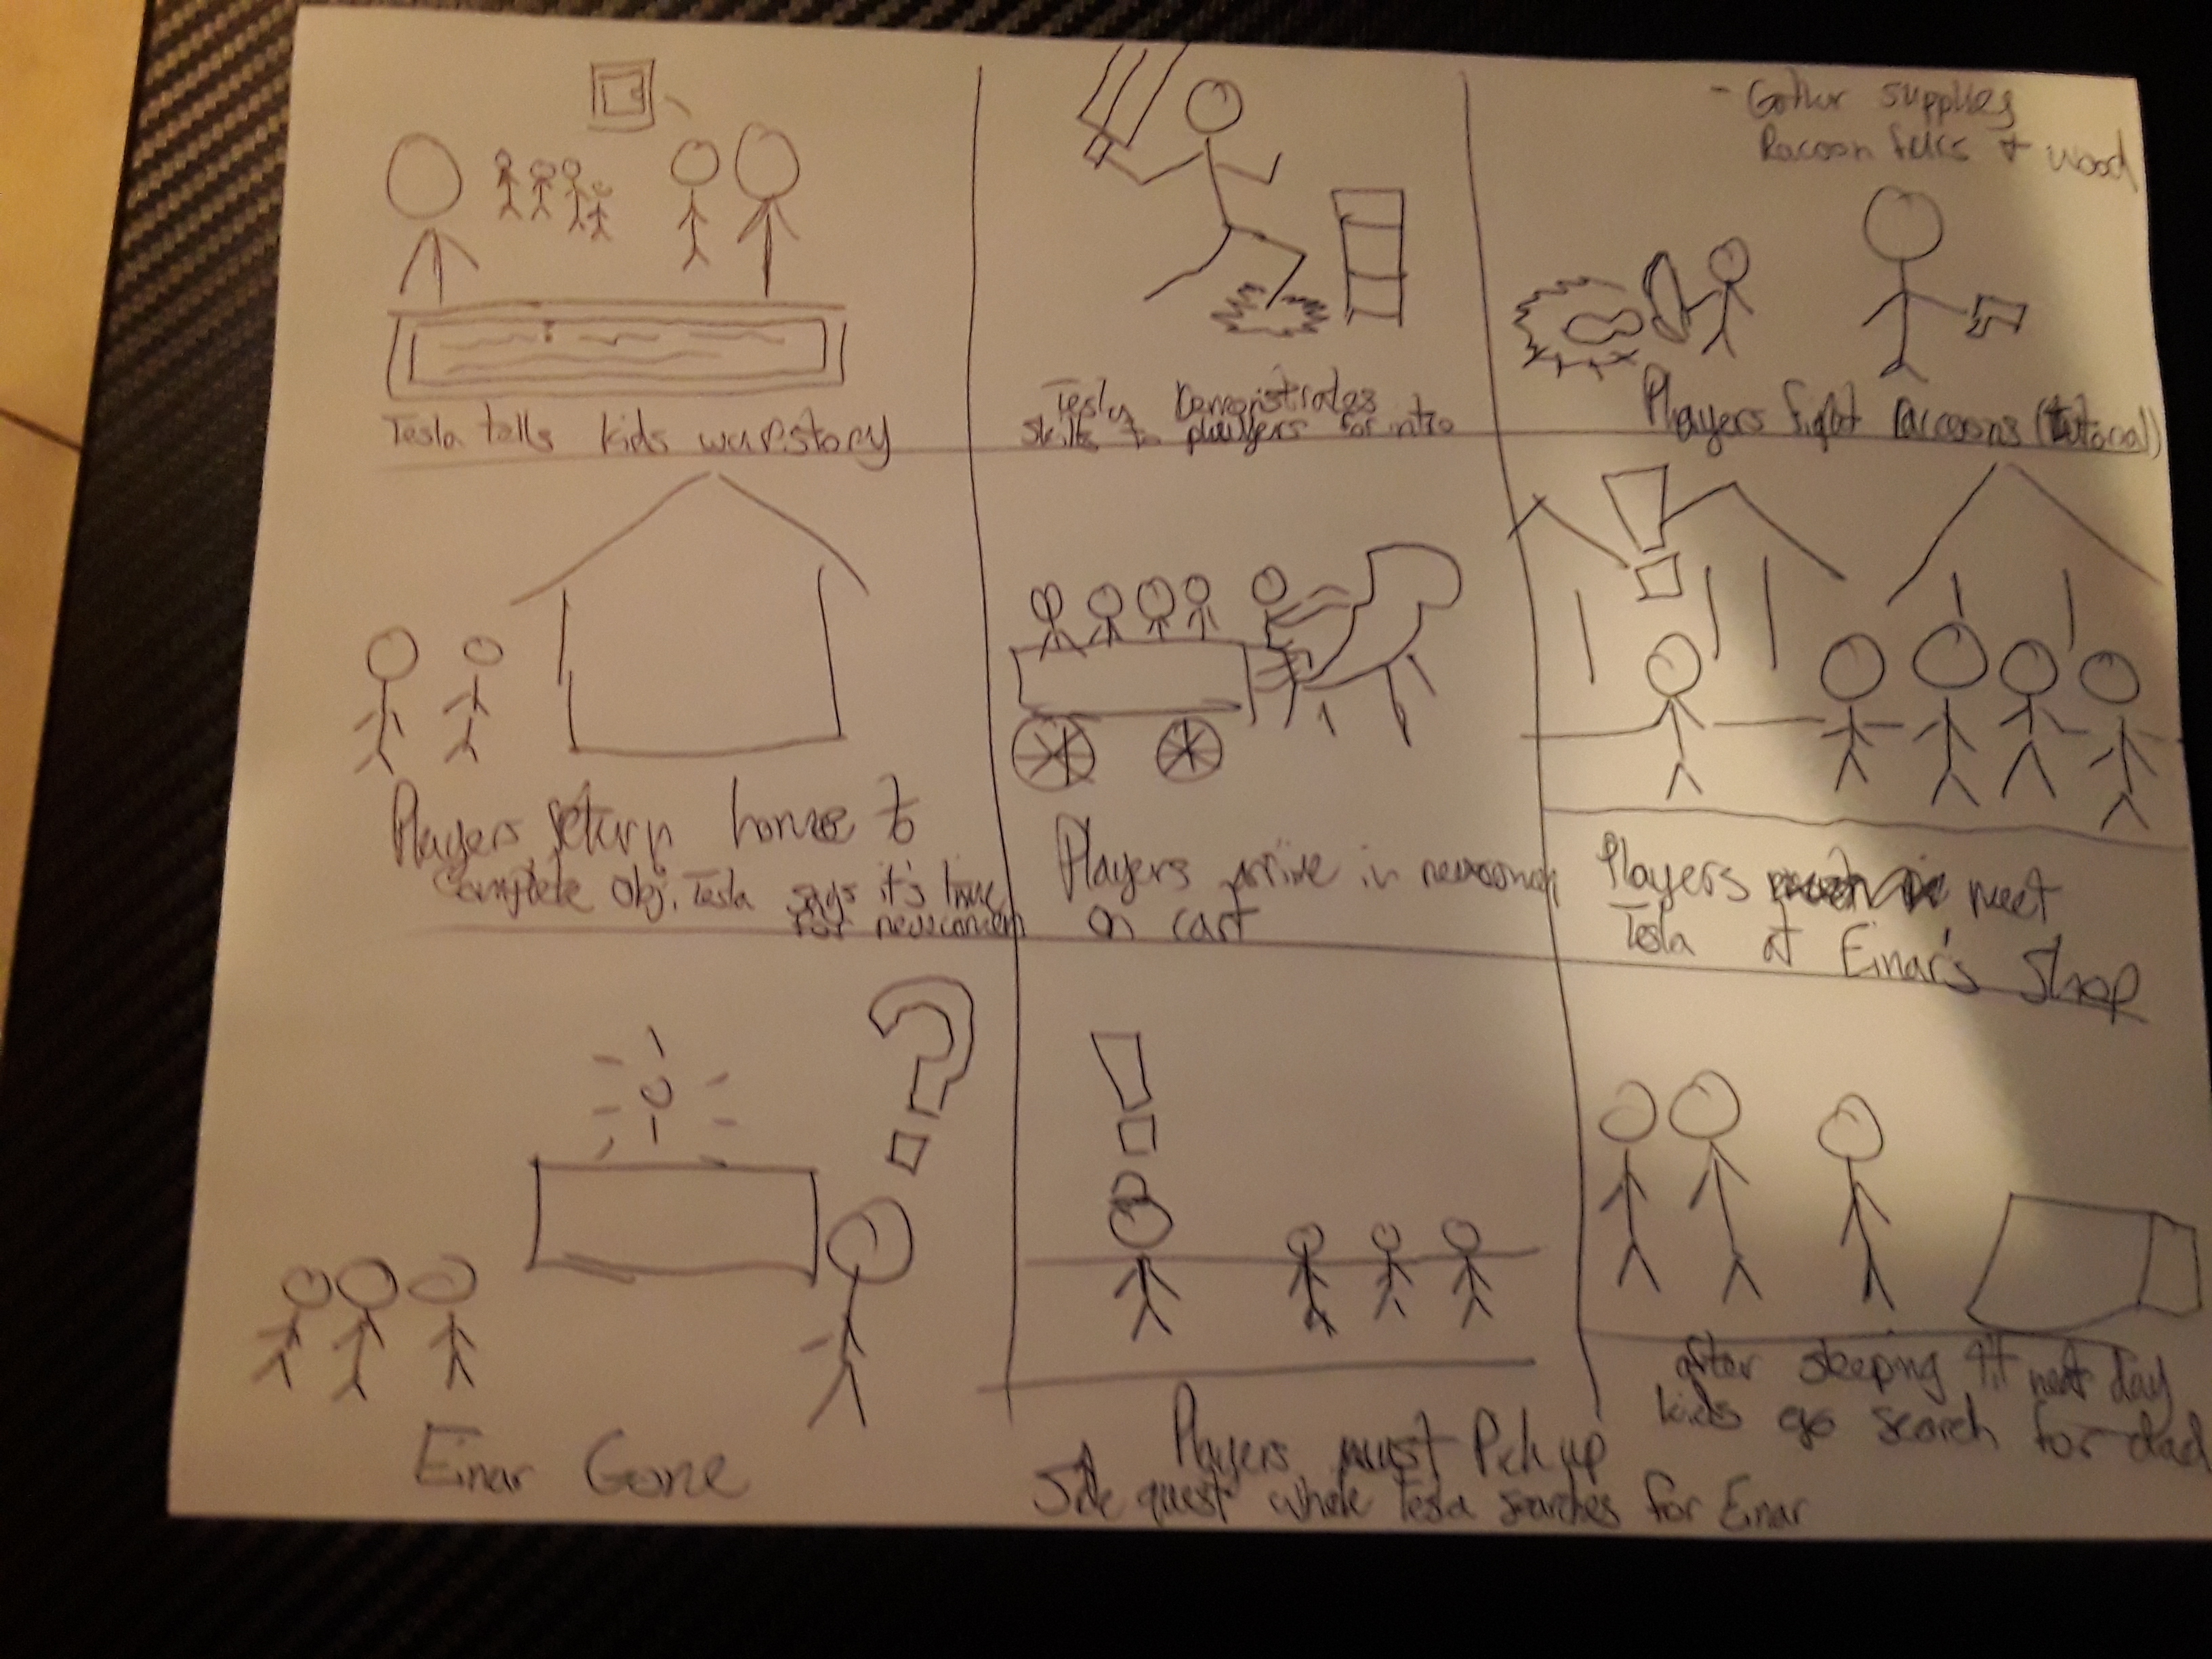 Tesla tells kids war story
Tesla Demonstrates
skills to players for intro
- Gather supplies
Racoon felts + wood
Players fight raccoons (tutorial)
Players return home to
Complete Obj. Tesla says it's time
for
Players arrive in
on cart
Players meet
Tesla at Einar's Shop
Einar Gone
Players must Pick up
Side quest while Tesla searches for Einar
after sleeping til next day
kids go search for dad